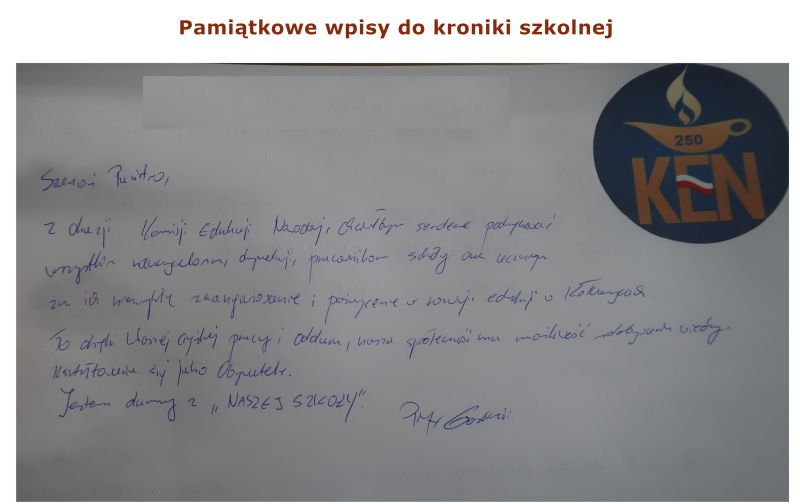 Pamiątkowe wpisy do kroniki szkolnej
250
KEN
Szanowni Państwo,
Z okazji Komisji Edukacji Narodowej, chciałbym serdecznie podziękować
wszystkim nauczycielom, dyrekcji, pracownikom szkoły oraz uczniom
za ich niezwykłe zaangażowanie i poświęcenie w rozwój edukacji w
To dzięki Waszej ciężkiej pracy i oddaniu, nasza społeczność ma możliwość zdobywania wiedzy,
kształtowania się jako Obywatele.
Jestem dumny z „NASZEJ SZKOŁY".
Piotr